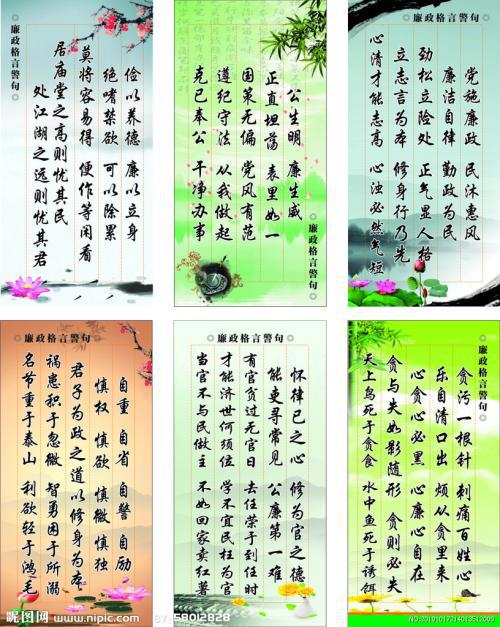 廉政格言警句
俭以养德 廉以立身
绝嗜禁欲 可以除累
莫将容易得 便作等闲看
居庙堂之高则忧其民
处江湖之远则忧其君
公生明 廉生威
正直坦荡 表里如一
国策无偏 党风有范
遵纪守法 从我做起
克已奉公 干净办事
廉政格言警句
廉政格言警句
党施廉政 民沐惠风
廉洁自律 勤政为民
劲松立险处 正气显人格
立志言为本 修身行乃先
心清才能志高 心浊必然气短
廉政格言警句
自重 自省 自警 自励
慎权 慎欲 慎微 慎独
君子为政之道以修身为本
祸患积于忽微 智勇困于所溺
名节重于泰山 利欲轻于鸿毛
廉政格言警句
怀律已之心 修为官之德
能吏寻常见 公廉第一难
有官贫过无官日 去任荣于到任时
才能济世何须位 学不宜民枉为官
当官不与民做主 不如回家卖红薯
廉政格言警句
贪污一根针 刺痛百姓心
乐自清口出 烦从贪里来
心贪心必黑 心廉心自在
贪与失如影随形 贪则必失
天上鸟死于贪食 水中鱼死于诱饵
昵图网 www.nipic.com